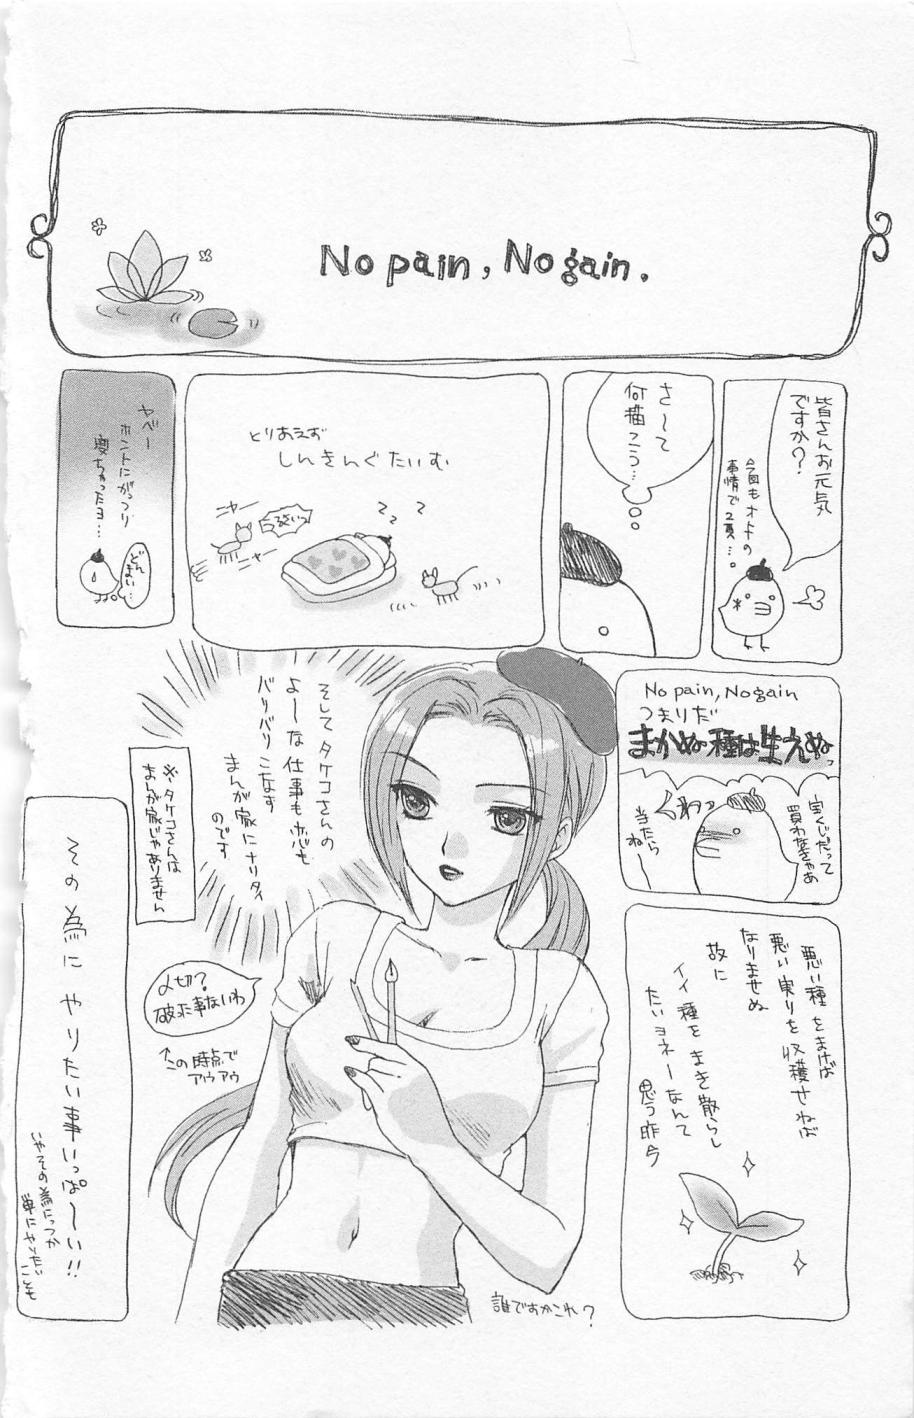 No pain, No gain.
皆さんお元気
ですか?
今回もオトナの
事情で2頁…。
さ〜て
何描こう…
とりあえず
しんきんぐたいむ
ニャー
ニャー
z z z
ヤベー
ホントにがっつり
寝ちゃったヨ…
どん
まい…
No pain, No gain
つまりだ
まかぬ種は生えぬっ
宝くじだって
買わなきゃあ
当たら
ねー
くわっ
悪い種をまけば
悪い実りを収穫せねば
なりませぬ
故に
イイ種をまき散らし
たいヨネーなんて
思う昨今
そしてタケコさんの
よ〜な仕事も恋も
バリバリこなす
まんが家にナリタイ
のです
※タケコさんは
まんが家じゃありません
〆切?
破った事ないわ
↑この時点で
アウアウ
誰ですかこれ?
その為に やりたい事いっぱ〜い!!
いやその為にっつか
単にやりたい
ことも